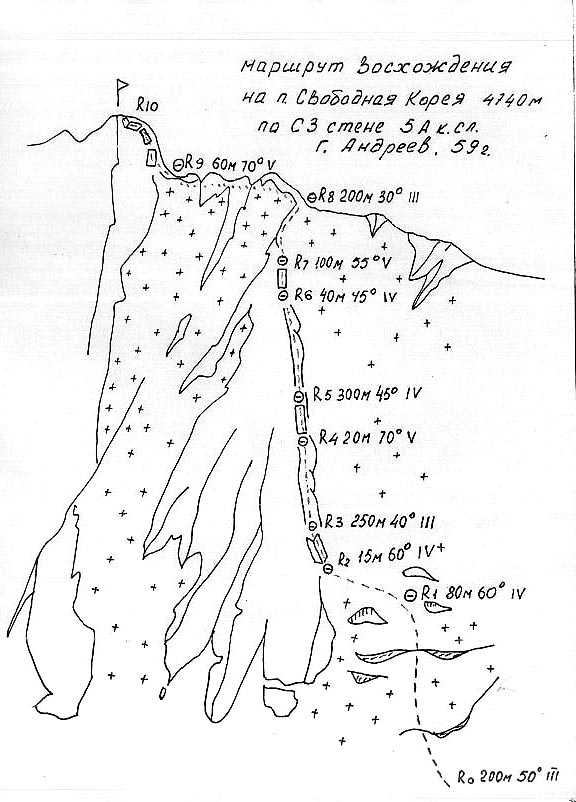 маршрут восхождения
на п. Свободная Корея 4740м
по СЗ стене 5А к.сл.
г. Андреев, 59г.
R10
R9 60м 70° V
R8 200м 30° III
R7 100м 55° V
R6 40м 45° IV
R5 300м 45° IV
R4 20м 70° V
R3 250м 40° III
R2 15м 60° IV+
R1 80м 60° IV
R0 200м 50° III